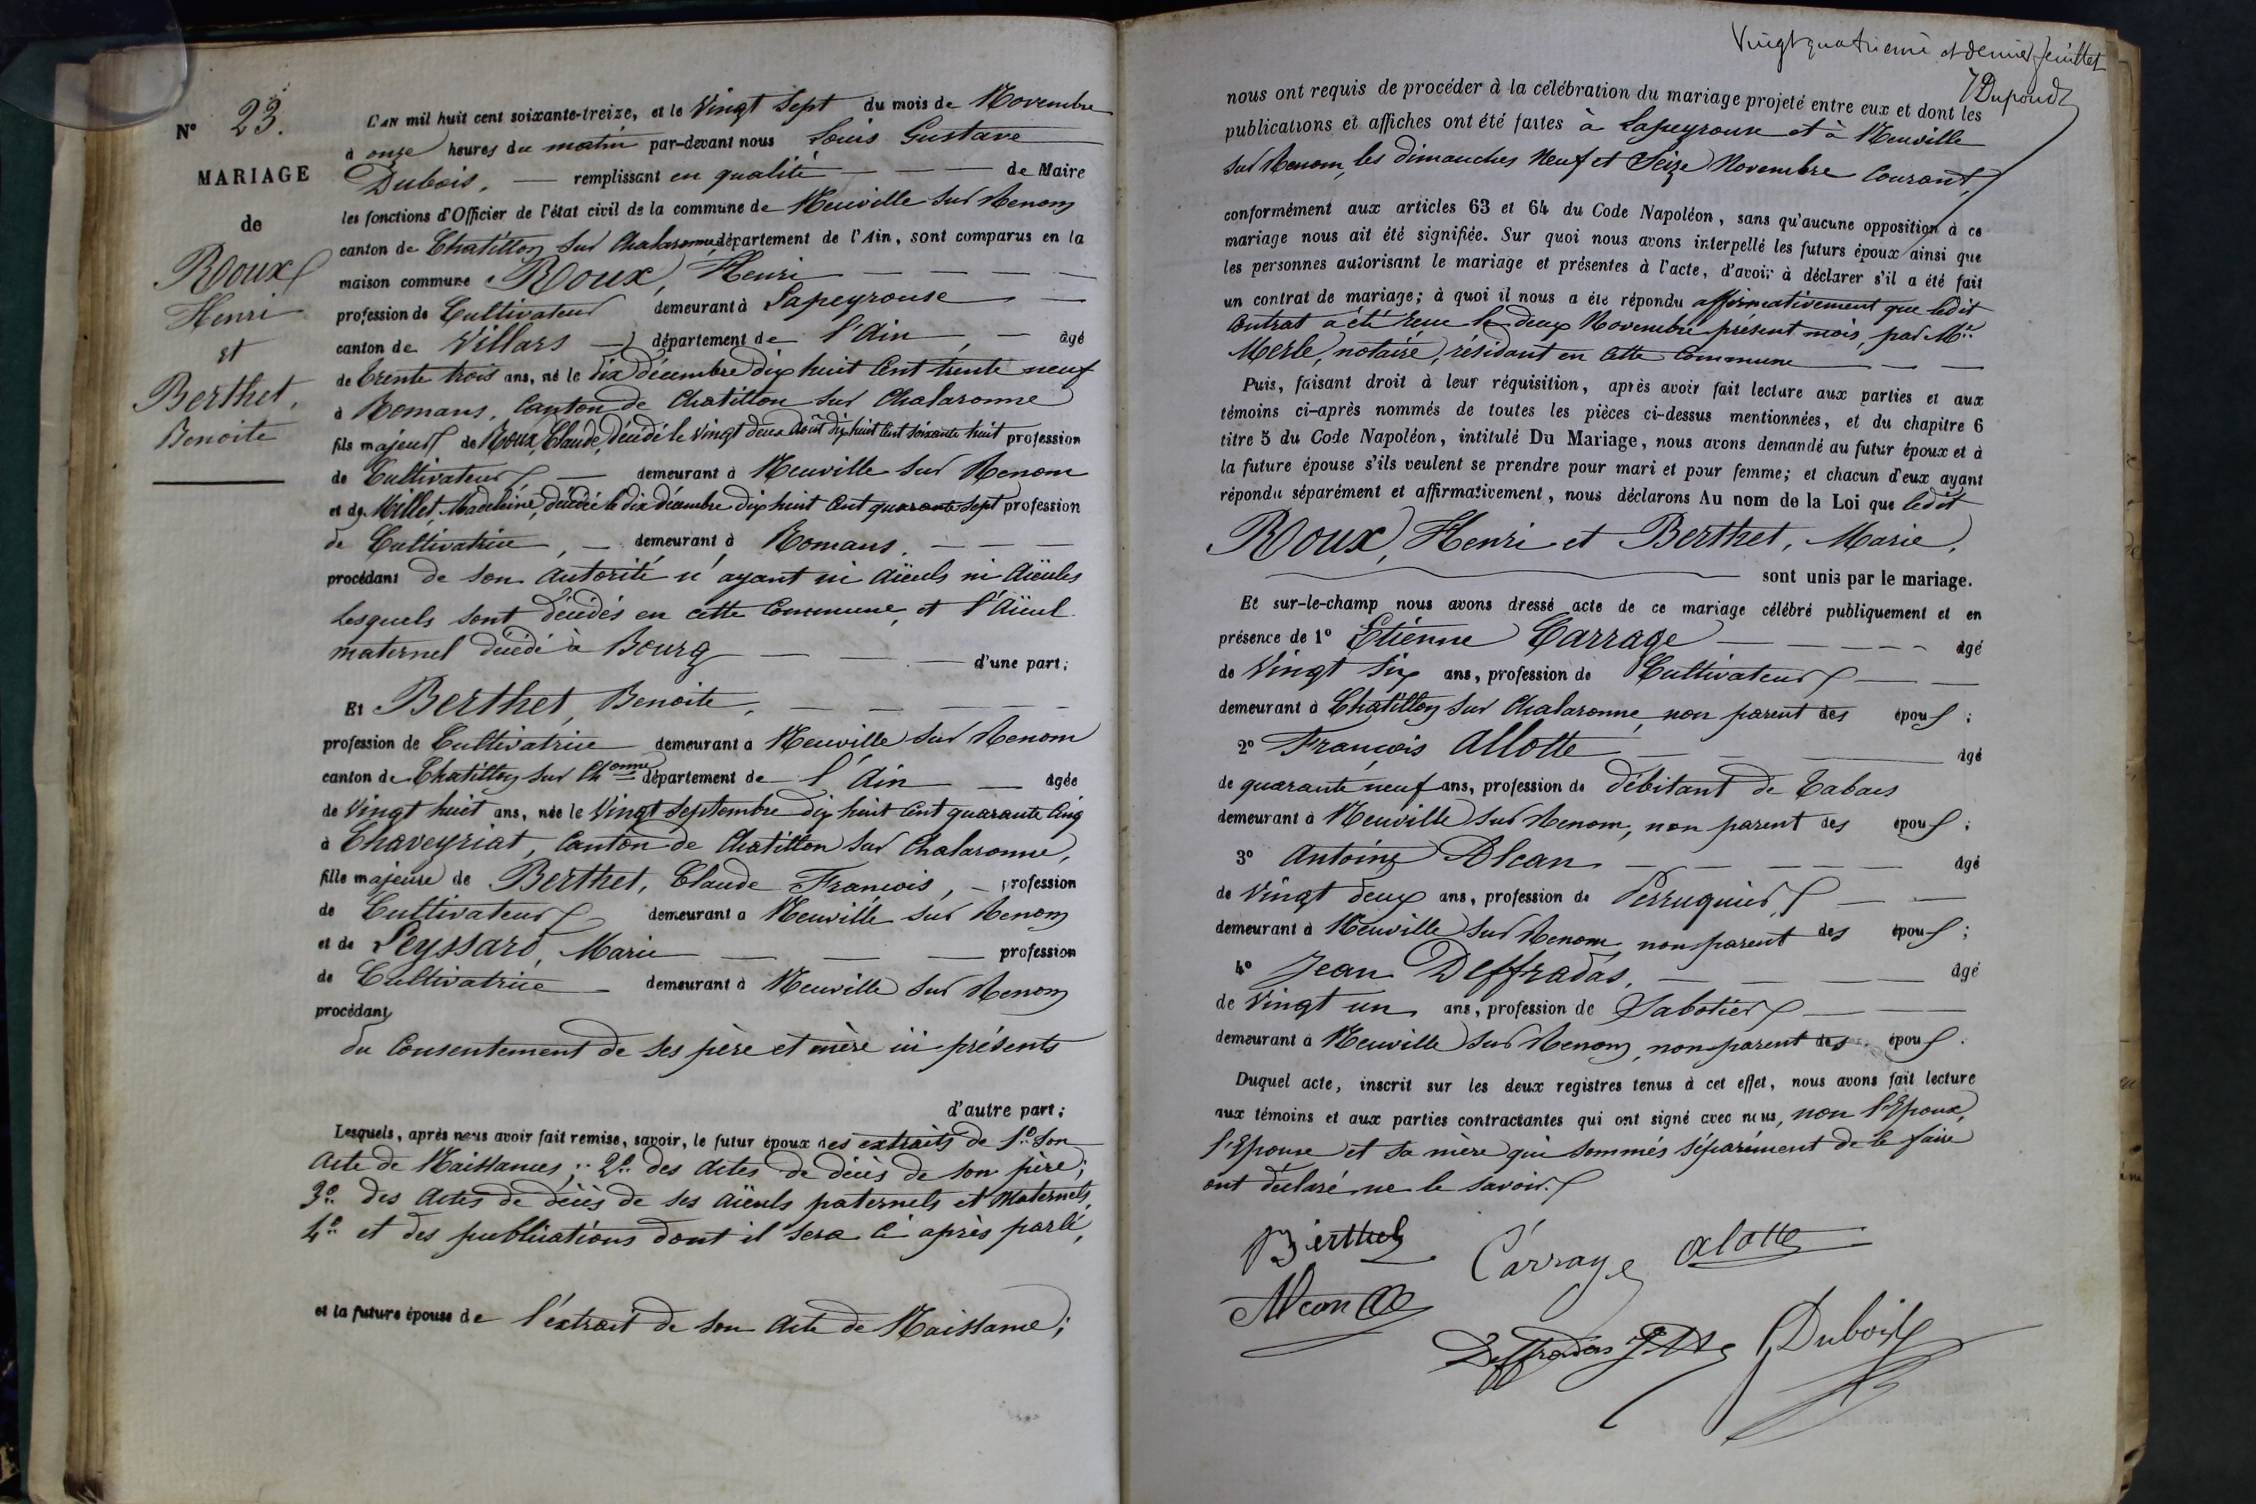 N° 23.
MARIAGE
de
Roux
Henri
et
Berthet,
Benoite
L'AN mil huit cent soixante-treize, et le Vingt Sept du mois de Novembre
à onze heures du matin par-devant nous Louis Gustave
Dubois, — remplissant en qualité — — — de Maire
les fonctions d'Officier de l'état civil de la commune de Neuville sur Renom
canton de Chatillon sur Chalaronne, département de l'Ain, sont comparus en la
maison commune Roux, Henri — — — —
profession de Cultivateur demeurant à Lapeyrouse —
canton de Villars —, département de l'Ain, — âgé
de trente trois ans, né le dix décembre dix huit Cent trente neuf
à Romans, Canton de Chatillon sur Chalaronne
fils majeur de Roux, Claude, décédé le vingt deux Août dix huit Cent soixante huit profession
de Cultivateur — demeurant à Neuville sur Renom
et de Millet, Madeleine, décédée le dix décembre dix huit Cent quarante sept profession
de Cultivatrice, — demeurant à Romans. — — —
procédant de son autorité n'ayant ni aïeuls ni aïeules
Lesquels sont décédés en cette Commune, et l'Aïeul
maternel décédé à Bourg — — — d'une part;
Et Berthet, Benoite, — — — — —
profession de Cultivatrice demeurant à Neuville sur Renom
canton de Chatillon sur Chonne département de l'Ain — agée
de Vingt huit ans, née le Vingt Septembre dix huit Cent quarante Cinq
à Chaveyriat, Canton de Chatillon sur Chalaronne,
fille majeure de Berthet, Claude François, — profession
de Cultivateur demeurant à Neuville sur Renom
et de Peyssard, Marie — — — profession
de Cultivatrice — demeurant à Neuville sur Renom
procédant
du Consentement de ses père et mère ici présents
d'autre part;
Lesquels, après nous avoir fait remise, savoir, le futur époux des extraits de 1° Son
Acte de Naissances; 2° des Actes de décès de son père;
3° des Actes de décès de ses aïeuls paternels et Maternels,
4° et des publications dont il sera Ci après parlé,
et la future épouse de l'extrait de son Acte de Naissance;
Vingt quatrième et dernier feuillet
nous ont requis de procéder à la célébration du mariage projeté entre eux et dont les
publications et affiches ont été faites à Lapeyrouse et à Neuville
sur Renom, les dimanches Neuf et Seize Novembre Courant,
conformément aux articles 63 et 64 du Code Napoléon, sans qu'aucune opposition à ce
mariage nous ait été signifiée. Sur quoi nous avons interpellé les futurs époux ainsi que
les personnes autorisant le mariage et présentes à l'acte, d'avoir à déclarer s'il a été fait
un contrat de mariage; à quoi il nous a été répondu affirmativement que ledit
Contrat a été reçu le deux Novembre présent mois, par Me
Merle, notaire, résidant en cette Commune — —
Puis, faisant droit à leur réquisition, après avoir fait lecture aux parties et aux
témoins ci-après nommés de toutes les pièces ci-dessus mentionnées, et du chapitre 6
titre 5 du Code Napoléon, intitulé Du Mariage, nous avons demandé au futur époux et à
la future épouse s'ils veulent se prendre pour mari et pour femme; et chacun d'eux ayant
répondu séparément et affirmativement, nous déclarons Au nom de la Loi que ledit
Roux, Henri et Berthet, Marie,
sont unis par le mariage.
Et sur-le-champ nous avons dressé acte de ce mariage célébré publiquement et en
présence de 1° Etienne Carrage — — — — âgé
de Vingt Six ans, profession de Cultivateur — —
demeurant à Chatillon sur Chalaronne, non parent des époux;
2° François Allotte — — — âgé
de quarante neuf ans, profession de débitant de Tabacs
demeurant à Neuville sur Renom, non parent des époux;
3° Antoine Alcan — — — — âgé
de Vingt deux ans, profession de Perruquier — —
demeurant à Neuville sur Renom non parent des époux;
4° Jean Deffradas, — — — âgé
de Vingt un ans, profession de Sabotier — — —
demeurant à Neuville sur Renom, non parent des époux.
Duquel acte, inscrit sur les deux registres tenus à cet effet, nous avons fait lecture
aux témoins et aux parties contractantes qui ont signé avec nous, non l'Epoux,
l'Epouse et sa mère qui sommés séparément de le faire
ont déclaré ne le savoir.
Berthet Carrage alotte
Alcan
Deffradas Dubois